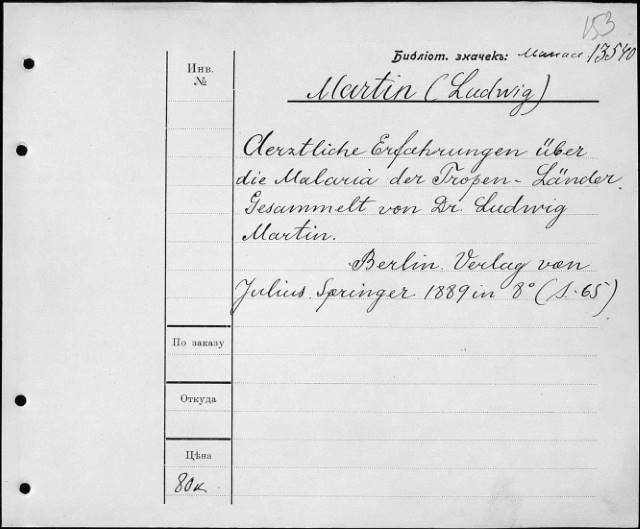 153
Библіот. значекъ: 13540
Инв.
№
Martin (Ludwig)
Aerztliche Erfahrungen über
die Malaria der Tropen-Länder.
Gesammelt von Dr. Ludwig
Martin.
Berlin. Verlag von
Julius Springer 1889 in 8° (S. 65)
По заказу
Откуда
Цѣна
80к